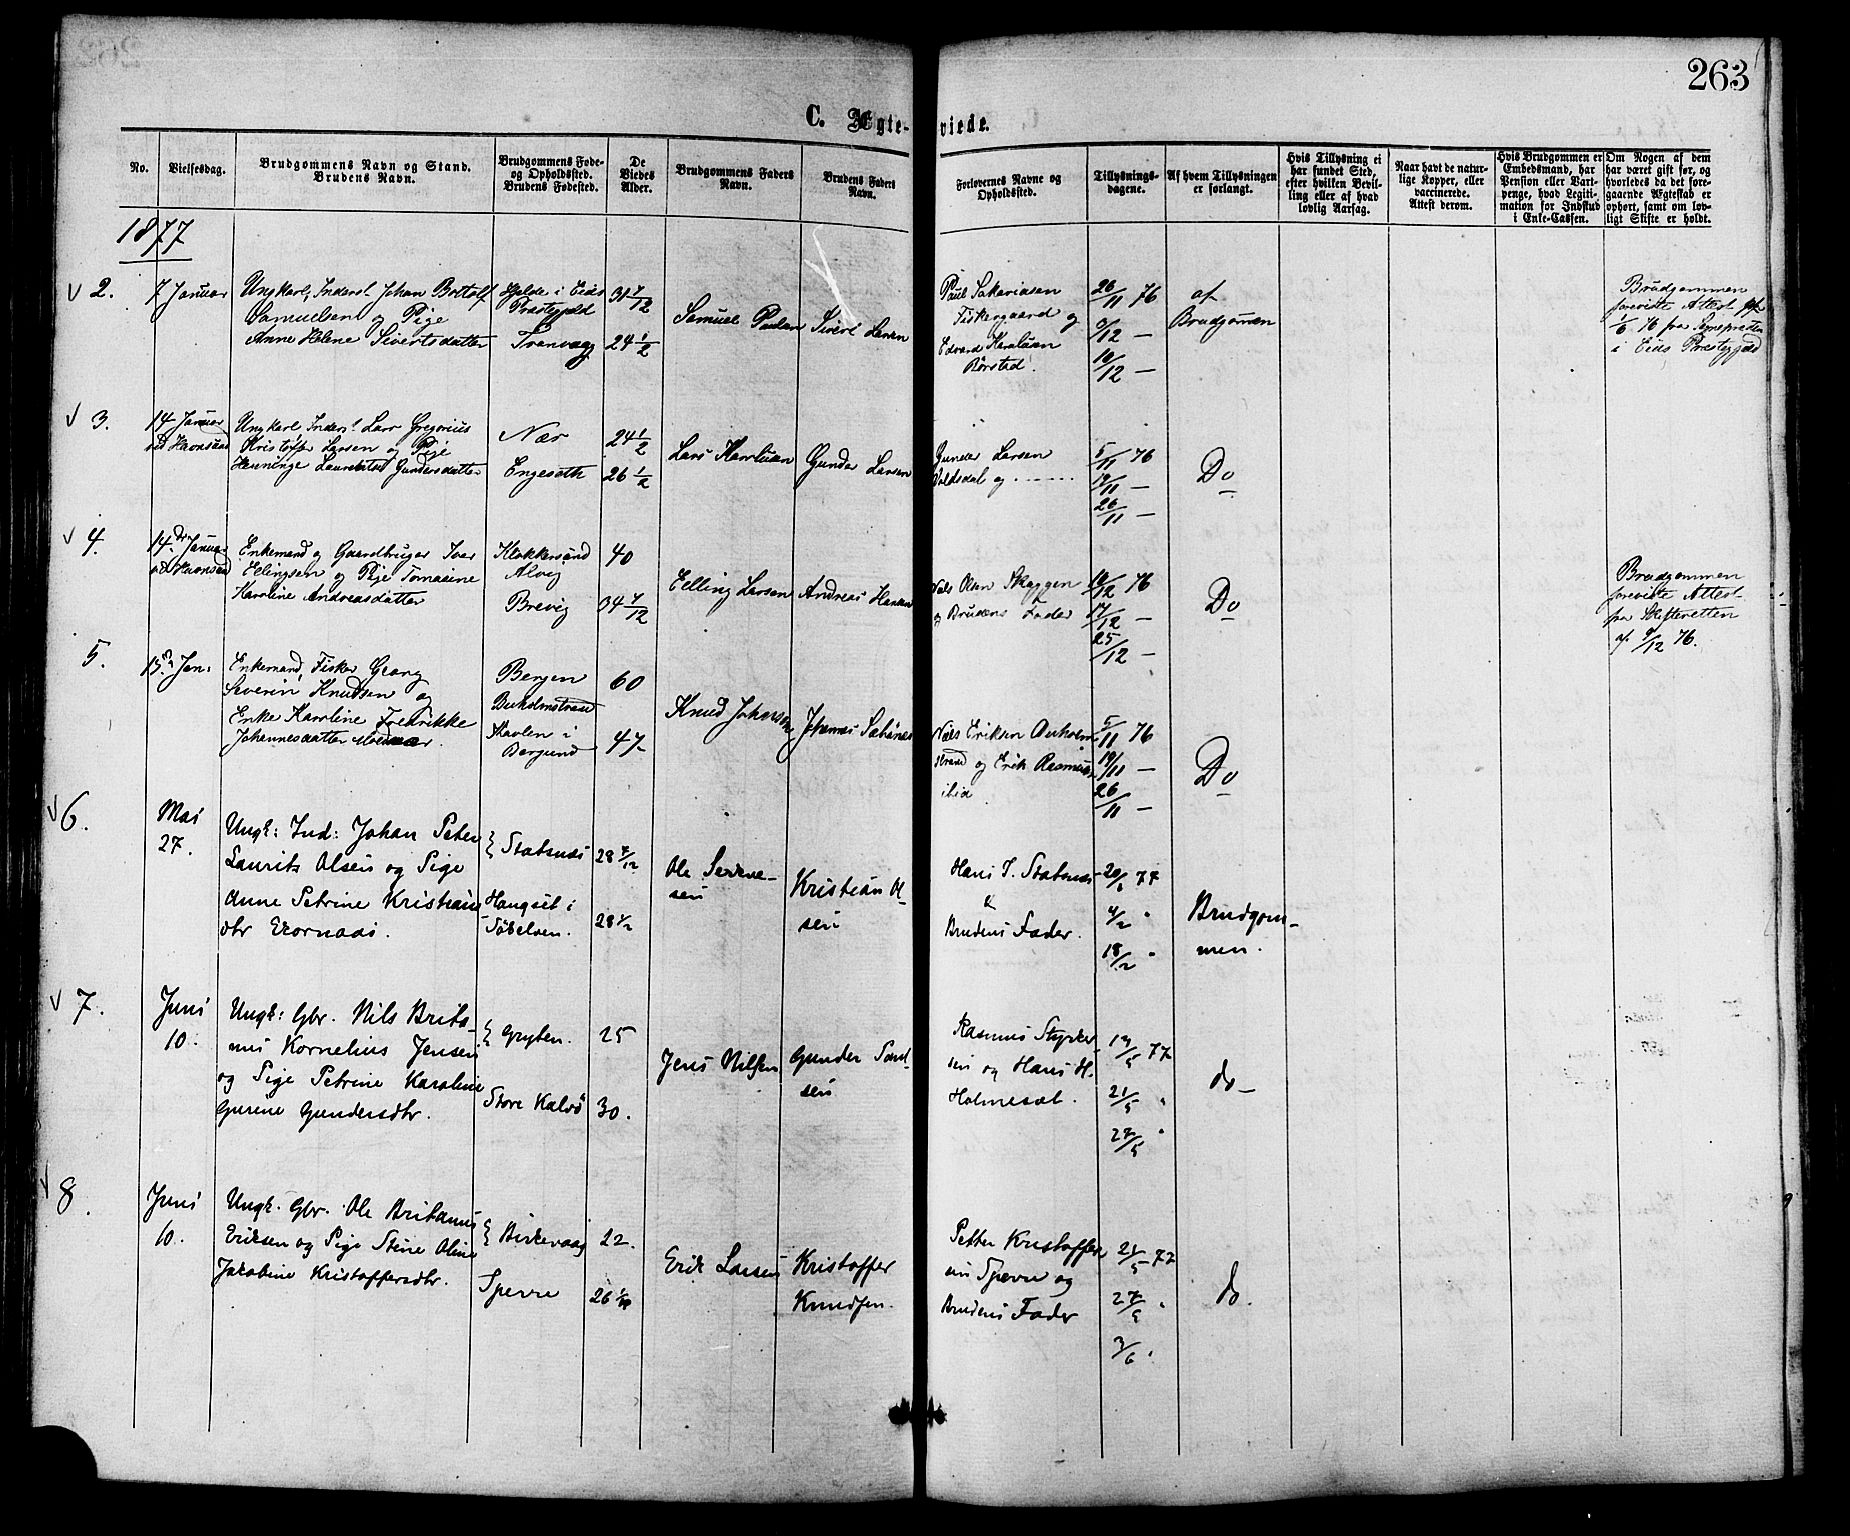 263
C. Ægte-viede.
No.
Vielsesdag.
Brudgommens Navn og Stand.
Brudens Navn.
Brudgommens Føde-
og Opholdssted.
Brudens Fødested.
De
Viedes
Alder.
Brudgommens Faders
Navn.
Brudens Faders
Navn.
Forlovernes Navne og
Opholdssted.
Tillysnings-
dagene.
Af hvem Tillysningen
er forlangt.
Hvis Tillysning ei
har fundet Sted,
efter hvilken Bevil-
ling eller af hvad
lovlig Aarsag.
Naar havt de natur-
lige Kopper, eller
vaccinerede.
Attest derom.
Hvis Brudgommen er
Embedsmand, har
Pension eller Vart-
penge, hvad Legiti-
mation for Indskud
i Enke-Cassen.
Om Nogen af dem
har været gift før, og
hvorledes da det fore-
gaaende Ægteskab er
ophørt, samt om lov-
ligt Skifte er holdt.
1877
2.
7 Januar
Ungkarl, Inderst Johan Bottolf
Samuelsen og Pige
Anne Helene Sivertsdatter
Hjelde i Eids
Præstegjeld
Tranvaag
31 7/12
24 1/2
Samuel Paulsen
Sivert Larsen
Paul Sakariasen
Fiskergaard og
Edvard Karlsen
Børstad.
26/11 76
/12 —
10/12 —
af
Brudgommen
Brudgommen
foreviste Attest
fra Sognepresten
i Eids Præstegjeld
3.
14 Januar
Ungkarl Inderst Lars Gregorius
Kristoffer Larsen og Pige
Henninge Laurentse Gundersdatter
Nær
Engesæth
24 1/2
26 1/2
Lars Karlsen
Gunder Larsen
Gunder Larsen
Voldsdal og ........
5/11 76
19/11 —
26/11 —
Do
4.
14. Januar
Enkemand og Gaardbruger Iver
Ellingsen og Pige Tomasine
Karoline Andreasdatter
Klokkersund
Alvig
Brevig
40
34 7/12
Elling Larsen
Andreas Hansen
Niels Olsen Skaggen
og Brudens Fader
10/12 76
17/12 —
25/12 —
Do
Brudgommen
foreviste Attest
fra Skifteretten
af 9/12 76.
5.
15 Jan:
Enkemand, Fisker Georg
Severin Knudsen og
Enke Karoline Fredrikke
Johannesdatter
Bergen
Buholmstrand
Stavlen i
Borgund
60
47
Knud Johansen
Johannes
Niels Eriksen Buholm-
strand og Erik Rasmus.
ibid.
5/11 76
19/11 —
26/11 —
Do
6.
Mai
27.
Ungk: Ind: Johan Peter
Laurits Olsen og Pige
Anne Petrine Kristians
dtr Ekornaas.
Statsnæs
Haugset i
28 7/12
28 1/2
Ole
sen
Kristian Ol-
sen
Hans J. Statsnæs
&
Brudens Fader.
77
4/2 "
18/2 "
Brudgom-
men.
7.
Juni
10.
Ungk: Gbr. Nils Brita-
nus Kornelius Jensen
og Pige Petrine Karoline
Gurine Gundersdtr.
Gryten.
Store Kalvø
25
30.
Jens Nilsen
Gunder
sen
Rasmus Styrker-
sen og Hans H.
Holmeset.
19/5 77
21/5 "
27/5 "
do—
8.
Juni
10.
Ungk. Gbr. Ole Britanus
Eriksen og Pige Stine Oline
Jakobine Kristoffersdtr.
Birkevaag
Sperre
22.
26
Erik Larsen
Kristoffer
Knudsen.
Petter Kristoffer-
sen Sperre og
Brudens Fader
21/5 77
27/5 "
3/6 "
do.